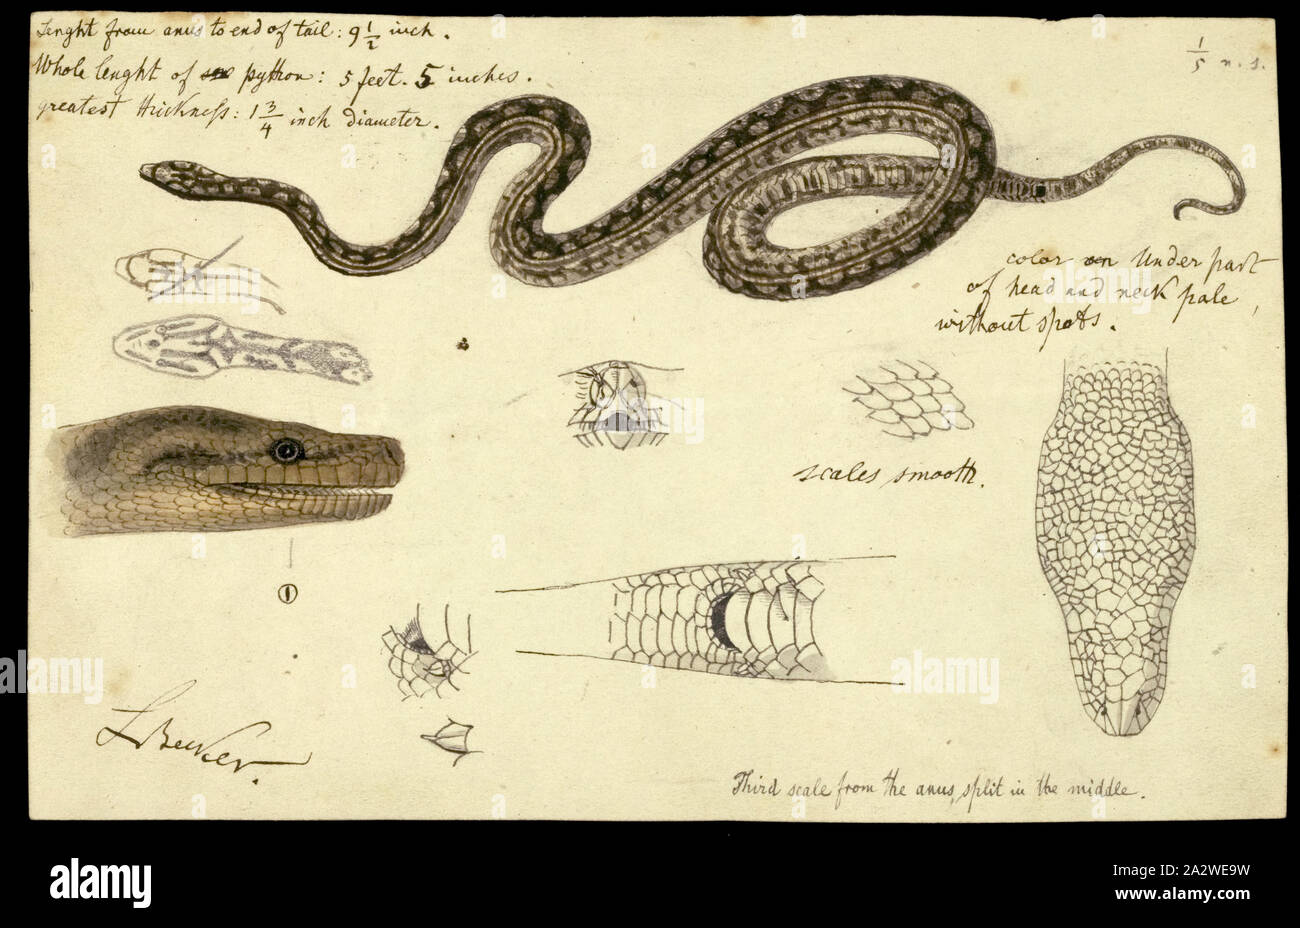 Lenght from anus to end of tail: 9 1/2 inch.
Whole lenght of python: 5 feet. 5 inches.
greatest thickness: 1 3/4 inch diameter.
1/5 n.s.
color on Under part
of head and neck pale,
without spots.
scales smooth.
1
LBecker.
Third scale from the anus, split in the middle.
alamy
alamy
alamy
alamy
Image ID: 2A2WE9W
www.alamy.com